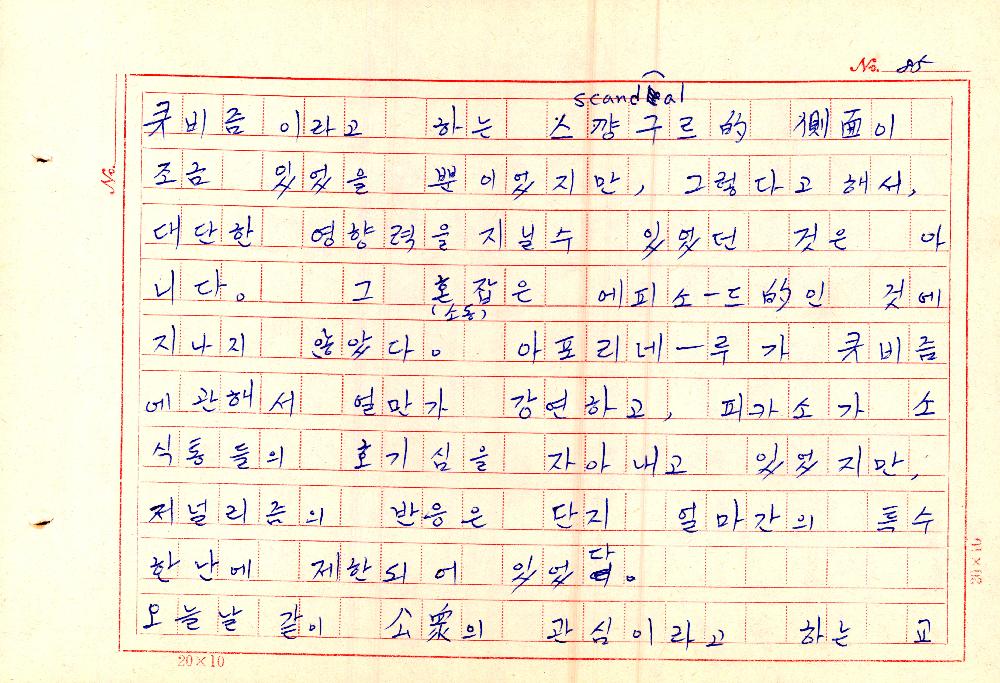 No. 85
scandal
큐비즘 이라고 하는 스캉구르的 側面이
조금 있었을 뿐이었지만, 그렇다고 해서,
대단한 영향력을 지닐수 있었던 것은 아
니다。 그 혼잡은 에피소-드的인 것에
(소동)
지나지 않았다。 아포리네-루가 큐비즘
에 관해서 얼만가 강연하고, 피카소가 소
식통들의 호기심을 자아내고 있었지만,
저널리즘의 반응은 단지 얼마간의 특수
한 난에 제한되어 있었다。
오늘날 같이 公衆의 관심이라고 하는 교
20×10
No.
20×10